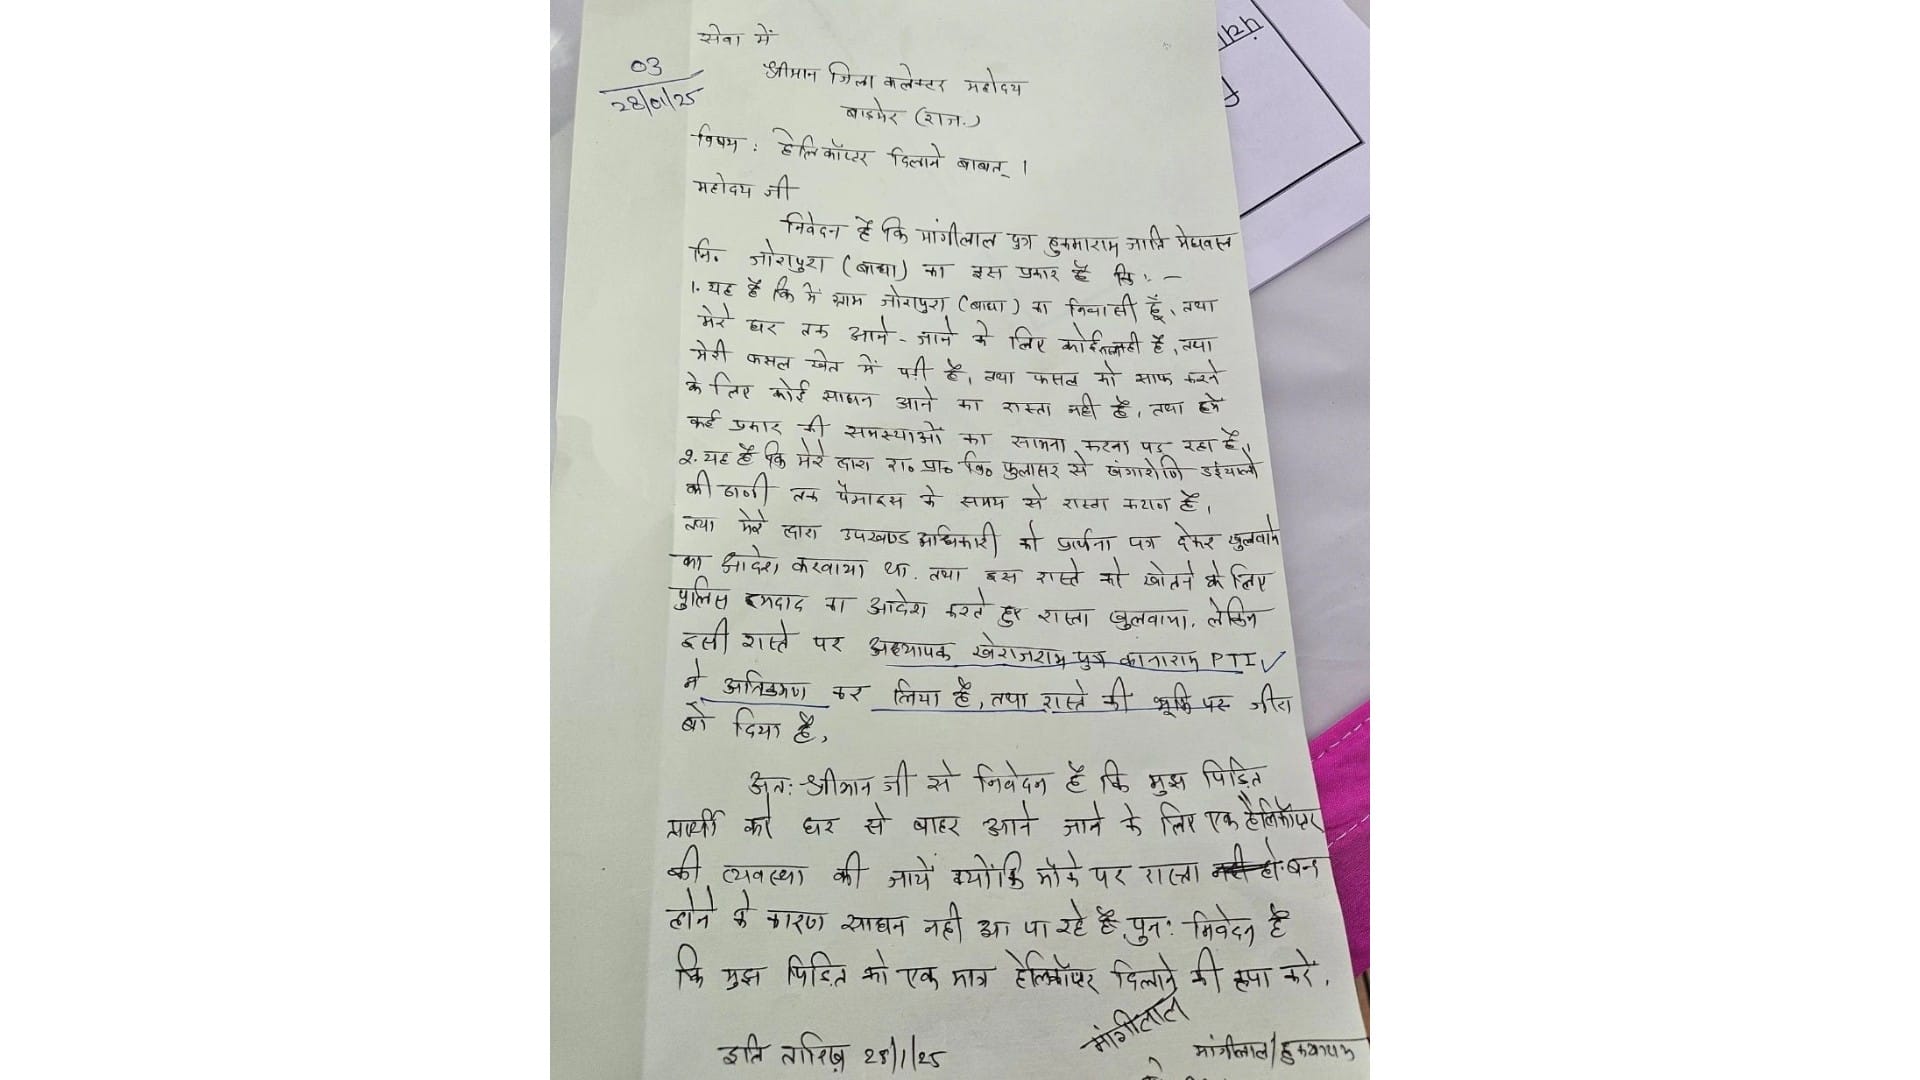 सेवा में
03
28/01/25
श्रीमान जिला कलेक्टर महोदय
बाडमेर (राज.)
विषय : हेलिकॉप्टर दिलाने बाबत् ।
महोदय जी
निवेदन है कि मांगीलाल पुत्र हुकमाराम जाति मेघवाल
नि० जोरापुरा (बाछा) का इस प्रकार है कि : -
1. यह है कि में ग्राम जोरापुरा (बाछा) का निवासी हूँ, तथा
मेरे घर तक आने - जाने के लिए कोई नही है, तथा
मेरी फसल खेत में पड़ी है, तथा फसल को साफ करने
के लिए कोई साधन आने का रास्ता नही है, तथा हमे
कई प्रकार की समस्याओं का सामना करना पड़ रहा है,
2. यह है कि मेरे द्वारा रा० प्रा० वि० फुलासर से
की ढाणी तक पैमाइस के समय से रास्ता कटान है,
तथा मेरे द्वारा उपखण्ड अधिकारी को प्रार्थना पत्र देकर खुलवाने
का आदेश करवाया था. तथा इस रास्ते को खोलने के लिए
पुलिस इमदाद का आदेश करते हुए रास्ता खुलवाया. लेकिन
इसी रास्ते पर अध्यापक खेराजराम पुत्र कानाराम PTI
ने अतिक्रमण कर लिया है, तथा रास्ते की भूमि पर जीरा
बो दिया है,
अत: श्रीमान जी से निवेदन है कि मुझ पिड़ित
प्रार्थी को घर से बाहर आने जाने के लिए एक हेलिकॉप्टर
की व्यवस्था की जायें क्योंकि मौके पर रास्ता बन्द
होने के कारण साधन नही आ पा रहे है, पुन: निवेदन है
कि मुझ पिड़ित को एक मात्र हेलिकॉप्टर दिलाने की कृपा करें.
मांगीलाल
इति तारिख़ 28/1/25
मांगीलाल/हुकमाराम